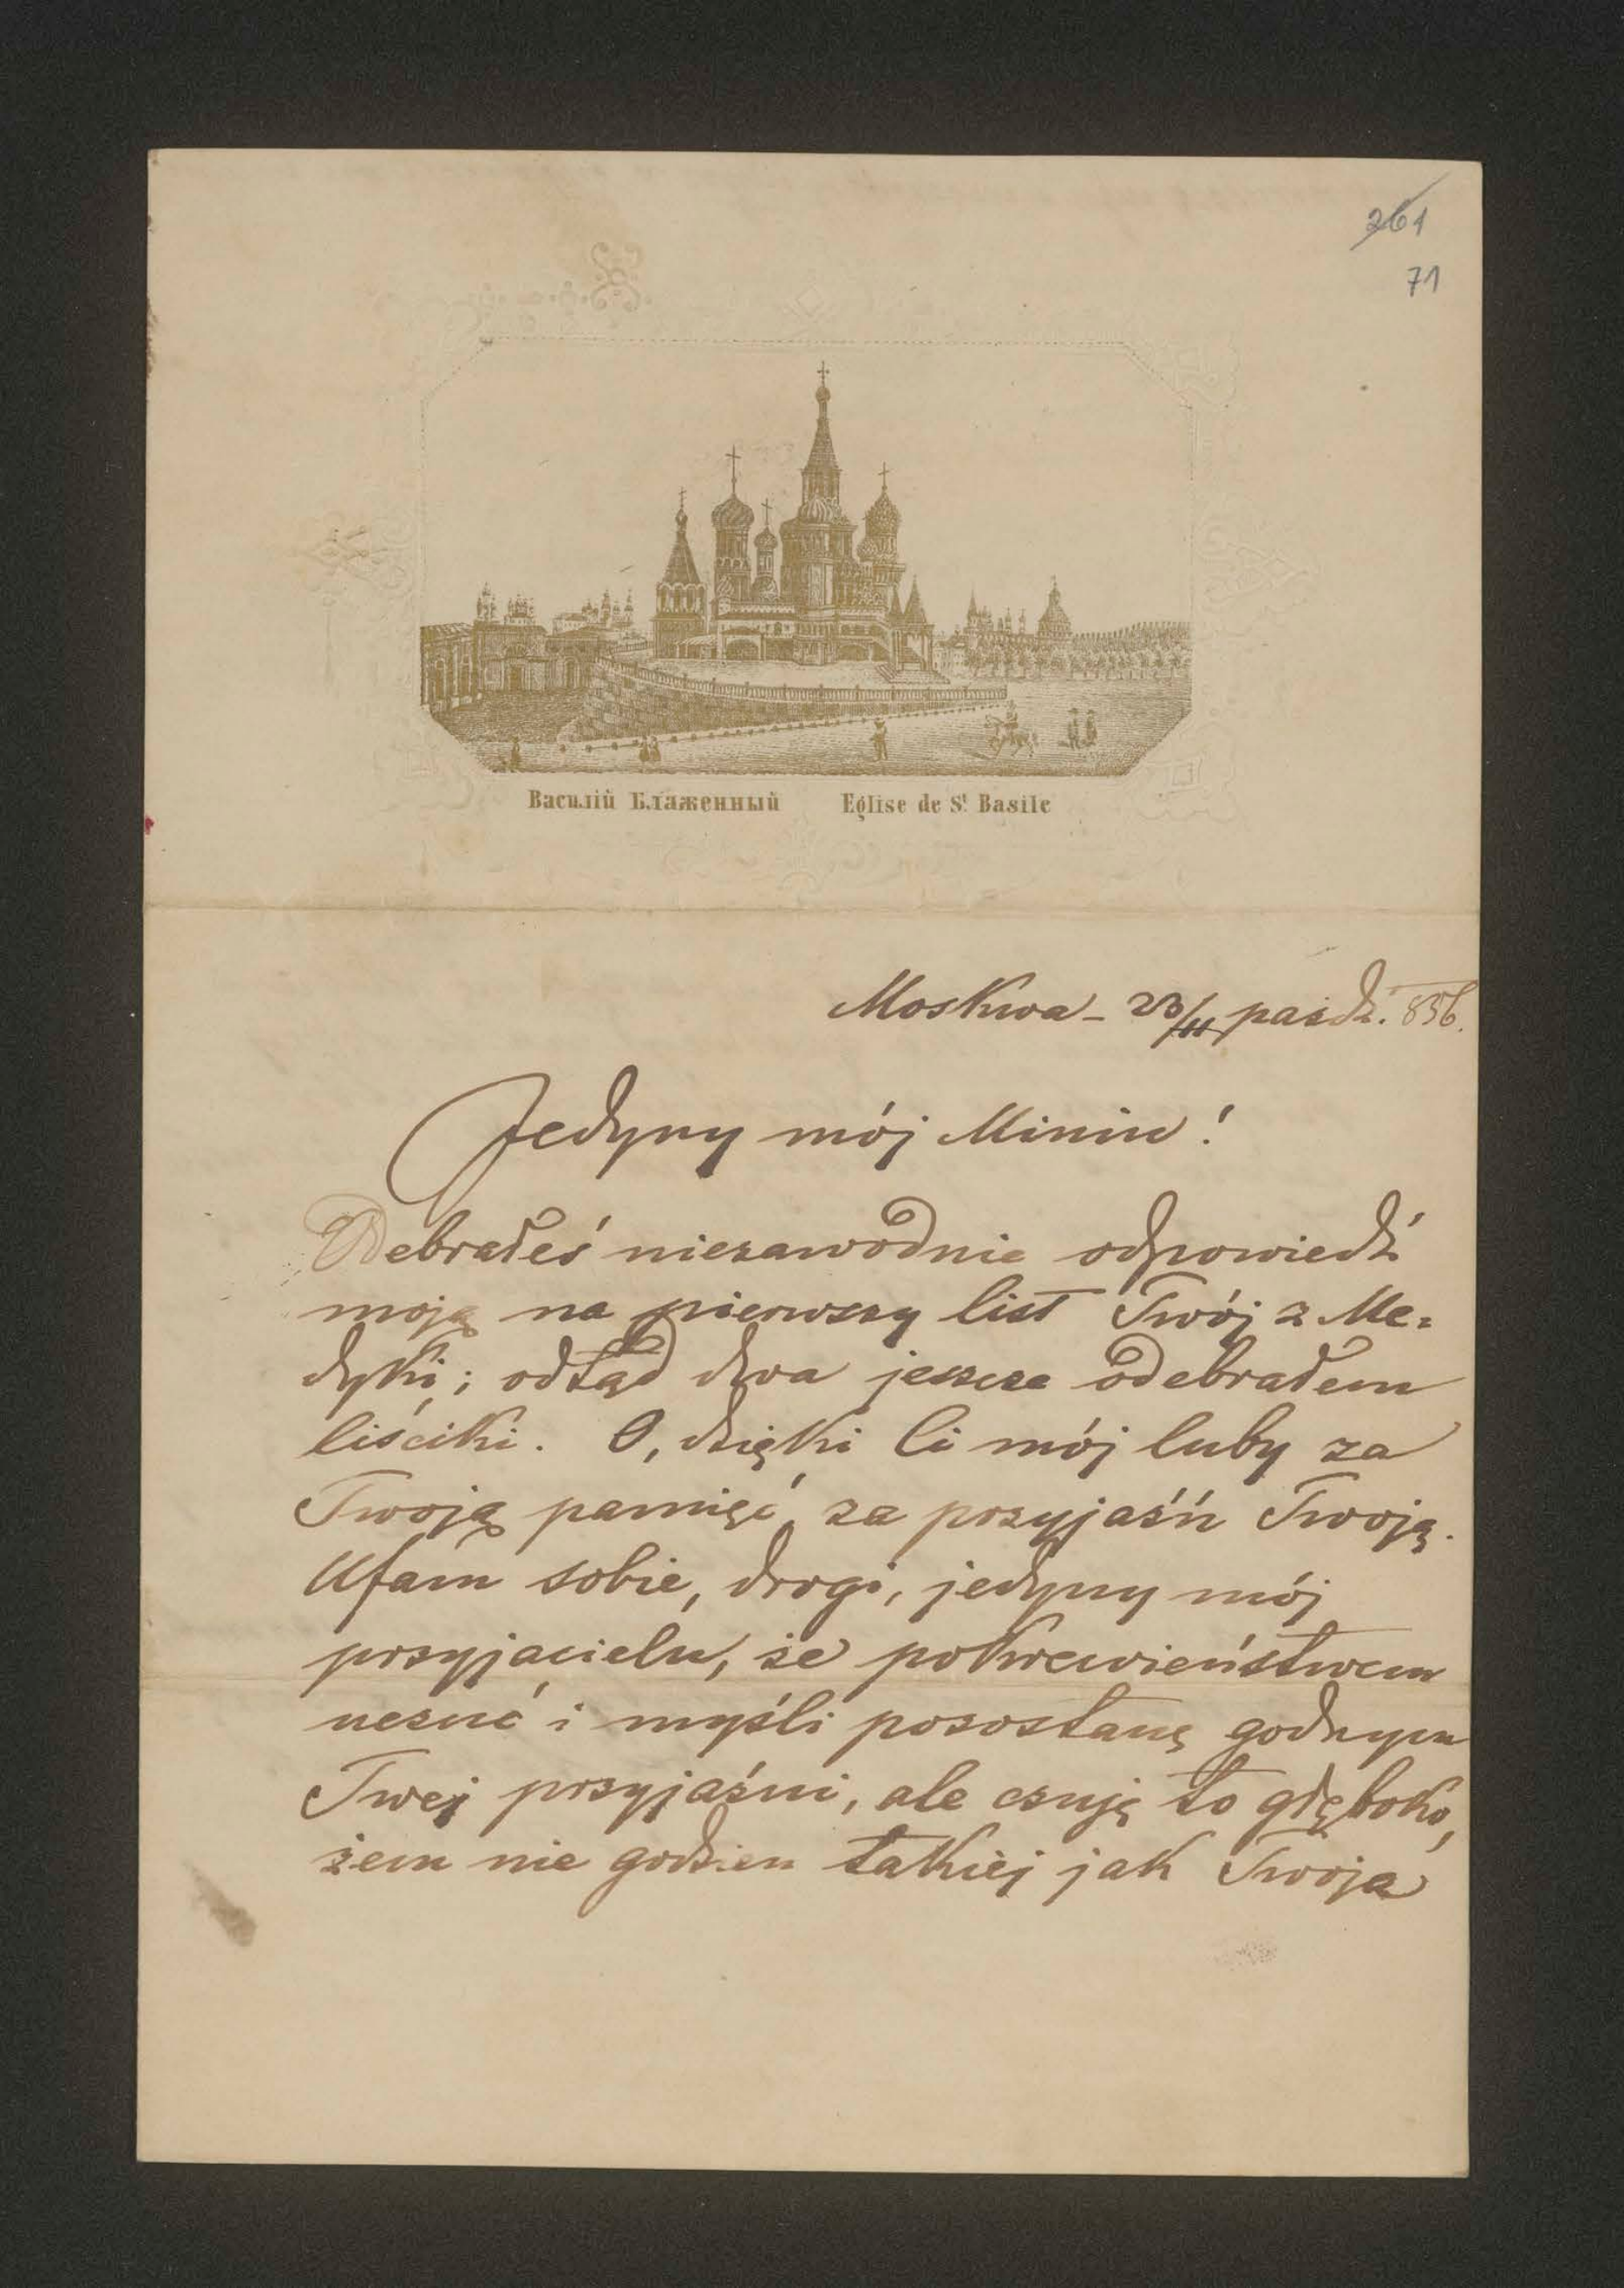 261
71
Василій Блаженный Eglise de St Basile
Moskwa - 23/11 paźdz. 856.
Jedyny mój Miniu!
Odebrałeś niezawodnie odpowiedź
moją na pierwszy list Twój z Me=
dyki; odtąd dwa jeszcze odebrałem
liściki. O, dzięki Ci mój luby za
Twoją pamięć, za przyjaźń Twoją.
Ufam sobie, drogi, jedyny mój
przyjacielu, że pokrewieństwem
uczuć i myśli pozostanę godnym
Twej przyjaźni, ale czuję to głęboko,
żem nie godzien takiej jak Twoja